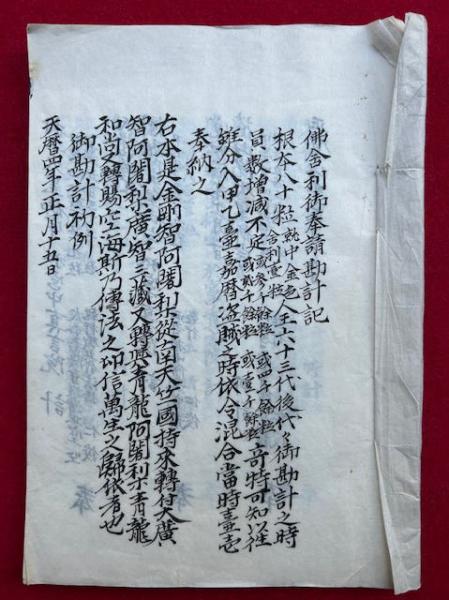 佛舎利御奉請勘計記
根本八十粒就中金色舎利壹粒人王六十三代後代々御勘計之時
員数増減不定或参千餘粒或貳千餘粒或四千餘粒或壹千餘粒奇特可知以往
鮮分入甲乙壷嘉暦盗賊之時依令混合當時壹壺
奉納之
右本是金剛智阿闍梨従南天竺國持来轉付大廣
智阿闍梨廣智三蔵又轉與青龍阿闍梨青龍
和尚又轉賜空海斯乃傳法之印信萬生之歸依者也
御勘計初例
天暦四年正月十五日